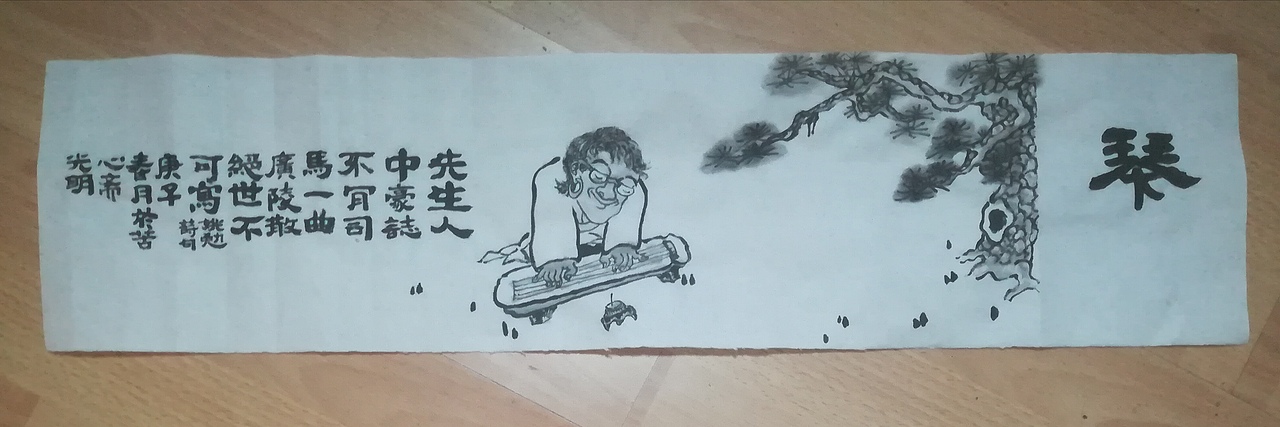 琴
先生人
中豪誌
不肎司
馬一曲
廣陵散
絕世不
可寫
姚勉
詩句
庚子
春月於苦
心斎
光明